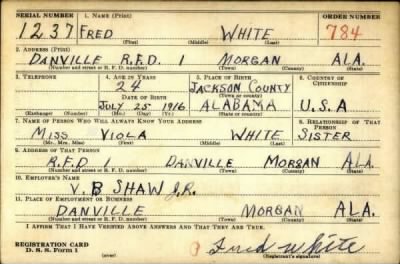 SERIAL NUMBER 1. NAME (Print) ORDER NUMBER
1237 FRED WHITE 784
(First) (Middle) (Last)
2. ADDRESS (Print)
DANVILLE R.F.D. 1 MORGAN ALA.
(Number and street or R. F. D. number) (Town) (County) (State)
3. TELEPHONE 4. AGE IN YEARS 5. PLACE OF BIRTH 6. COUNTRY OF CITIZENSHIP
24 JACKSON COUNTY
DATE OF BIRTH (Town or county)
JULY 25 1916 ALABAMA U.S.A
(Exchange) (Number) (Mo.) (Day) (Yr.) (State or country)
7. NAME OF PERSON WHO WILL ALWAYS KNOW YOUR ADDRESS 8. RELATIONSHIP OF THAT PERSON
MISS VIOLA WHITE SISTER
(Mr., Mrs., Miss) (First) (Middle) (Last)
9. ADDRESS OF THAT PERSON
R.F.D 1 DANVILLE MORGAN ALA.
(Number and street or R. F. D. number) (Town) (County) (State)
10. EMPLOYER'S NAME
V. B SHAW J.R.
11. PLACE OF EMPLOYMENT OR BUSINESS
DANVILLE MORGAN ALA.
(Number and street or R. F. D. number) (Town) (County) (State)
I AFFIRM THAT I HAVE VERIFIED ABOVE ANSWERS AND THAT THEY ARE TRUE.
REGISTRATION CARD
D. S. S. Form 1 (over) Fred White
(Registrant's signature)